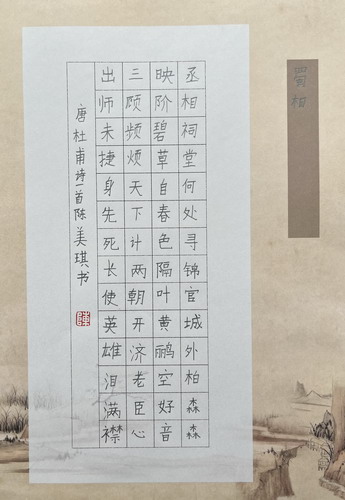 蜀相
丞相祠堂何处寻锦官城外柏森森
映阶碧草自春色隔叶黄鹂空好音
三顾频烦天下计两朝开济老臣心
出师未捷身先死长使英雄泪满襟
唐杜甫诗一首陈美琪书